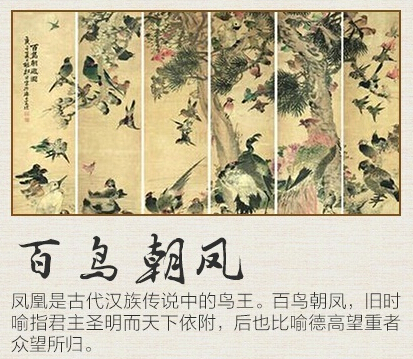 百鸟朝凤图
百鸟朝凤
凤凰是古代汉族传说中的鸟王。百鸟朝凤，旧时
喻指君主圣明而天下依附，后也比喻德高望重者
众望所归。